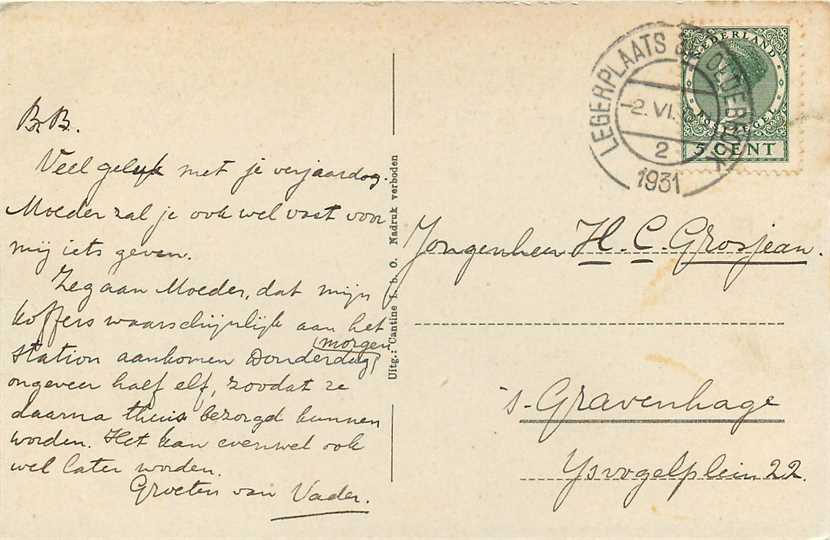 B.B.
Veel geluk met je verjaardag.
Moeder zal je ook wel vast voor
mij iets geven.
Zeg aan Moeder, dat mijn
koffers waarschijnlijk aan het
station aankomen Donderdag (morgen
ongeveer half elf, zoodat ze
daarna thuis bezorgd kunnen
worden. Het kan evenwel ook
wel later worden.
Groeten van Vader.
Uitg.: Cantine I. b. O. Nadruk verboden
LEGERPLAATS BIJ OLDEBROEK
-2.VI.
2
1931
NEDERLAND
POSTZEGEL
5 CENT
Jongenheer H. C. Grosjean.
's-Gravenhage
IJsvogelplein 22.